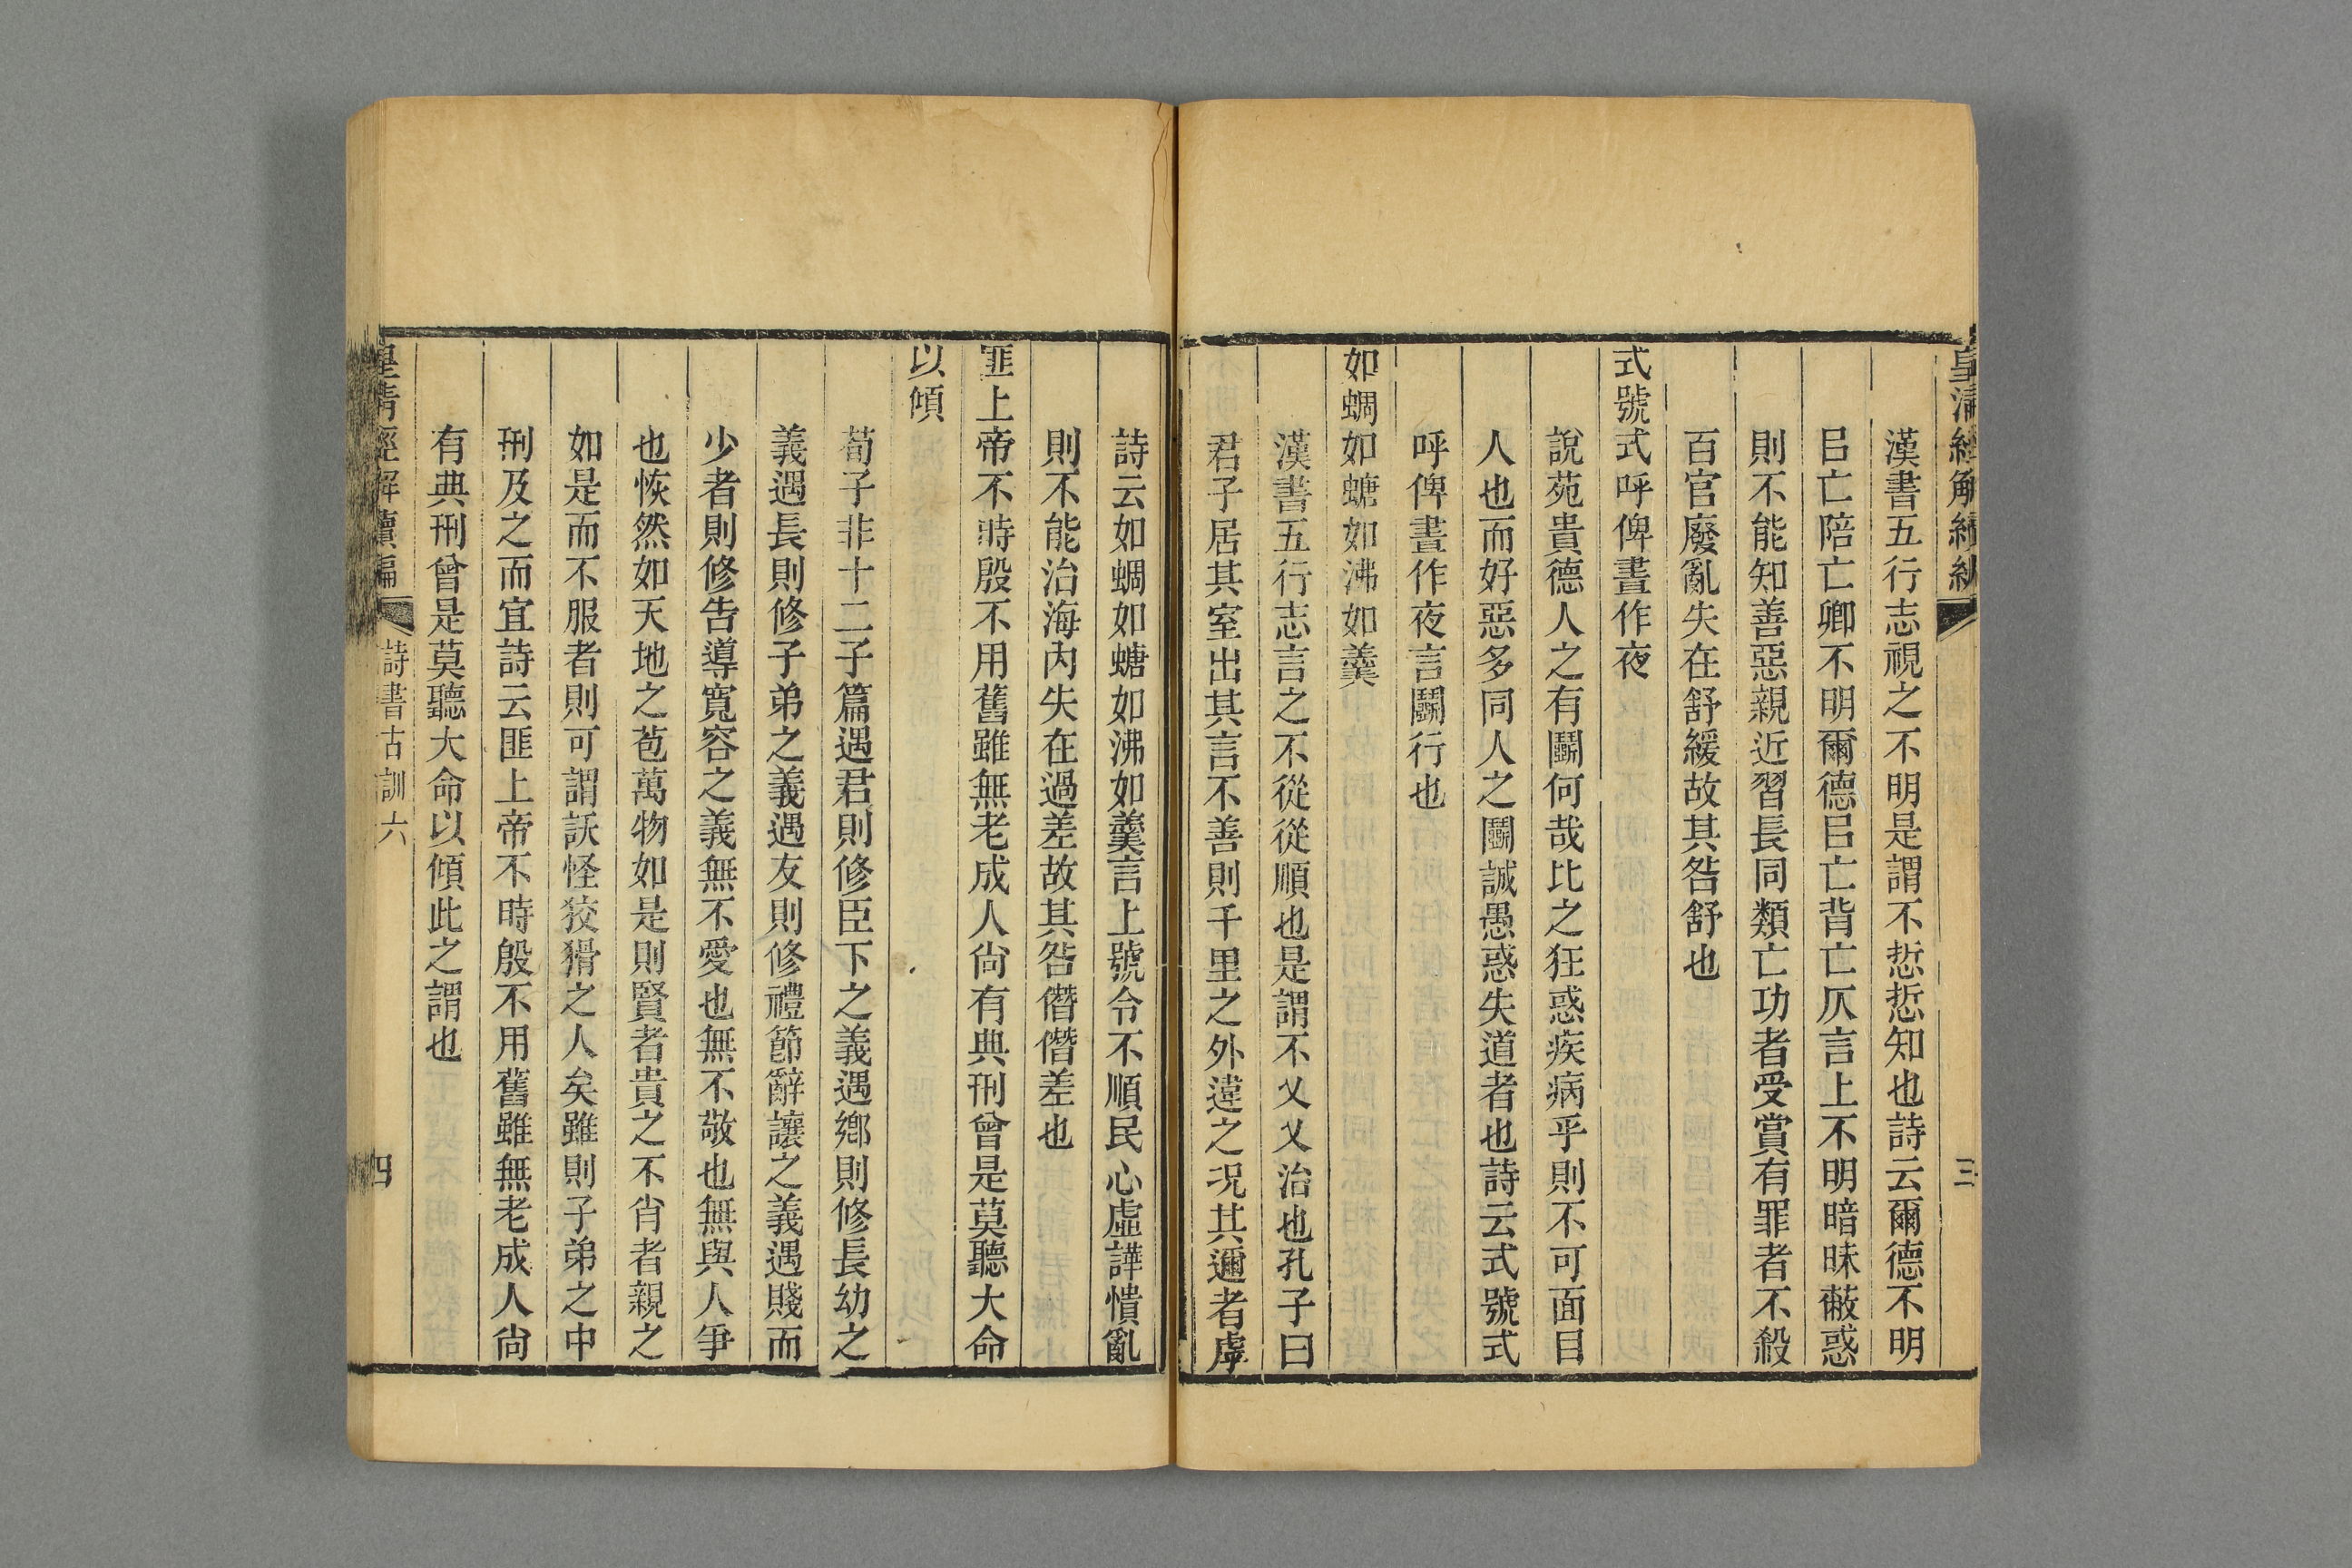 皇清經解續編
三
漢書五行志視之不明是謂不悊悊知也詩云爾德不明
㠯亡陪亡卿不明爾德㠯亡背亡仄言上不明暗昧蔽惑
則不能知善惡親近習長同類亡功者受賞有罪者不殺
百官廢亂失在舒緩故其咎舒也
式號式呼俾晝作夜
說苑貴德人之有鬭何哉比之狂惑疾病乎則不可面目
人也而好惡多同人之鬭誠愚惑失道者也詩云式號式
呼俾晝作夜言鬭行也
如蜩如螗如沸如羹
漢書五行志言之不從從順也是謂不乂乂治也孔子曰
君子居其室出其言不善則千里之外違之況其邇者虖
詩云如蜩如螗如沸如羹言上號令不順民心虛譁憒亂
則不能治海內失在過差故其咎僭僭差也
匪上帝不時殷不用舊雖無老成人尙有典刑曾是莫聽大命
以傾
荀子非十二子篇遇君則修臣下之義遇鄉則修長幼之
義遇長則修子弟之義遇友則修禮節辭讓之義遇賤而
少者則修告導寬容之義無不愛也無不敬也無與人爭
也恢然如天地之苞萬物如是則賢者貴之不肖者親之
如是而不服者則可謂訞怪狡猾之人矣雖則子弟之中
刑及之而宜詩云匪上帝不時殷不用舊雖無老成人尙
有典刑曾是莫聽大命以傾此之謂也
皇清經解續編
詩書古訓六
四